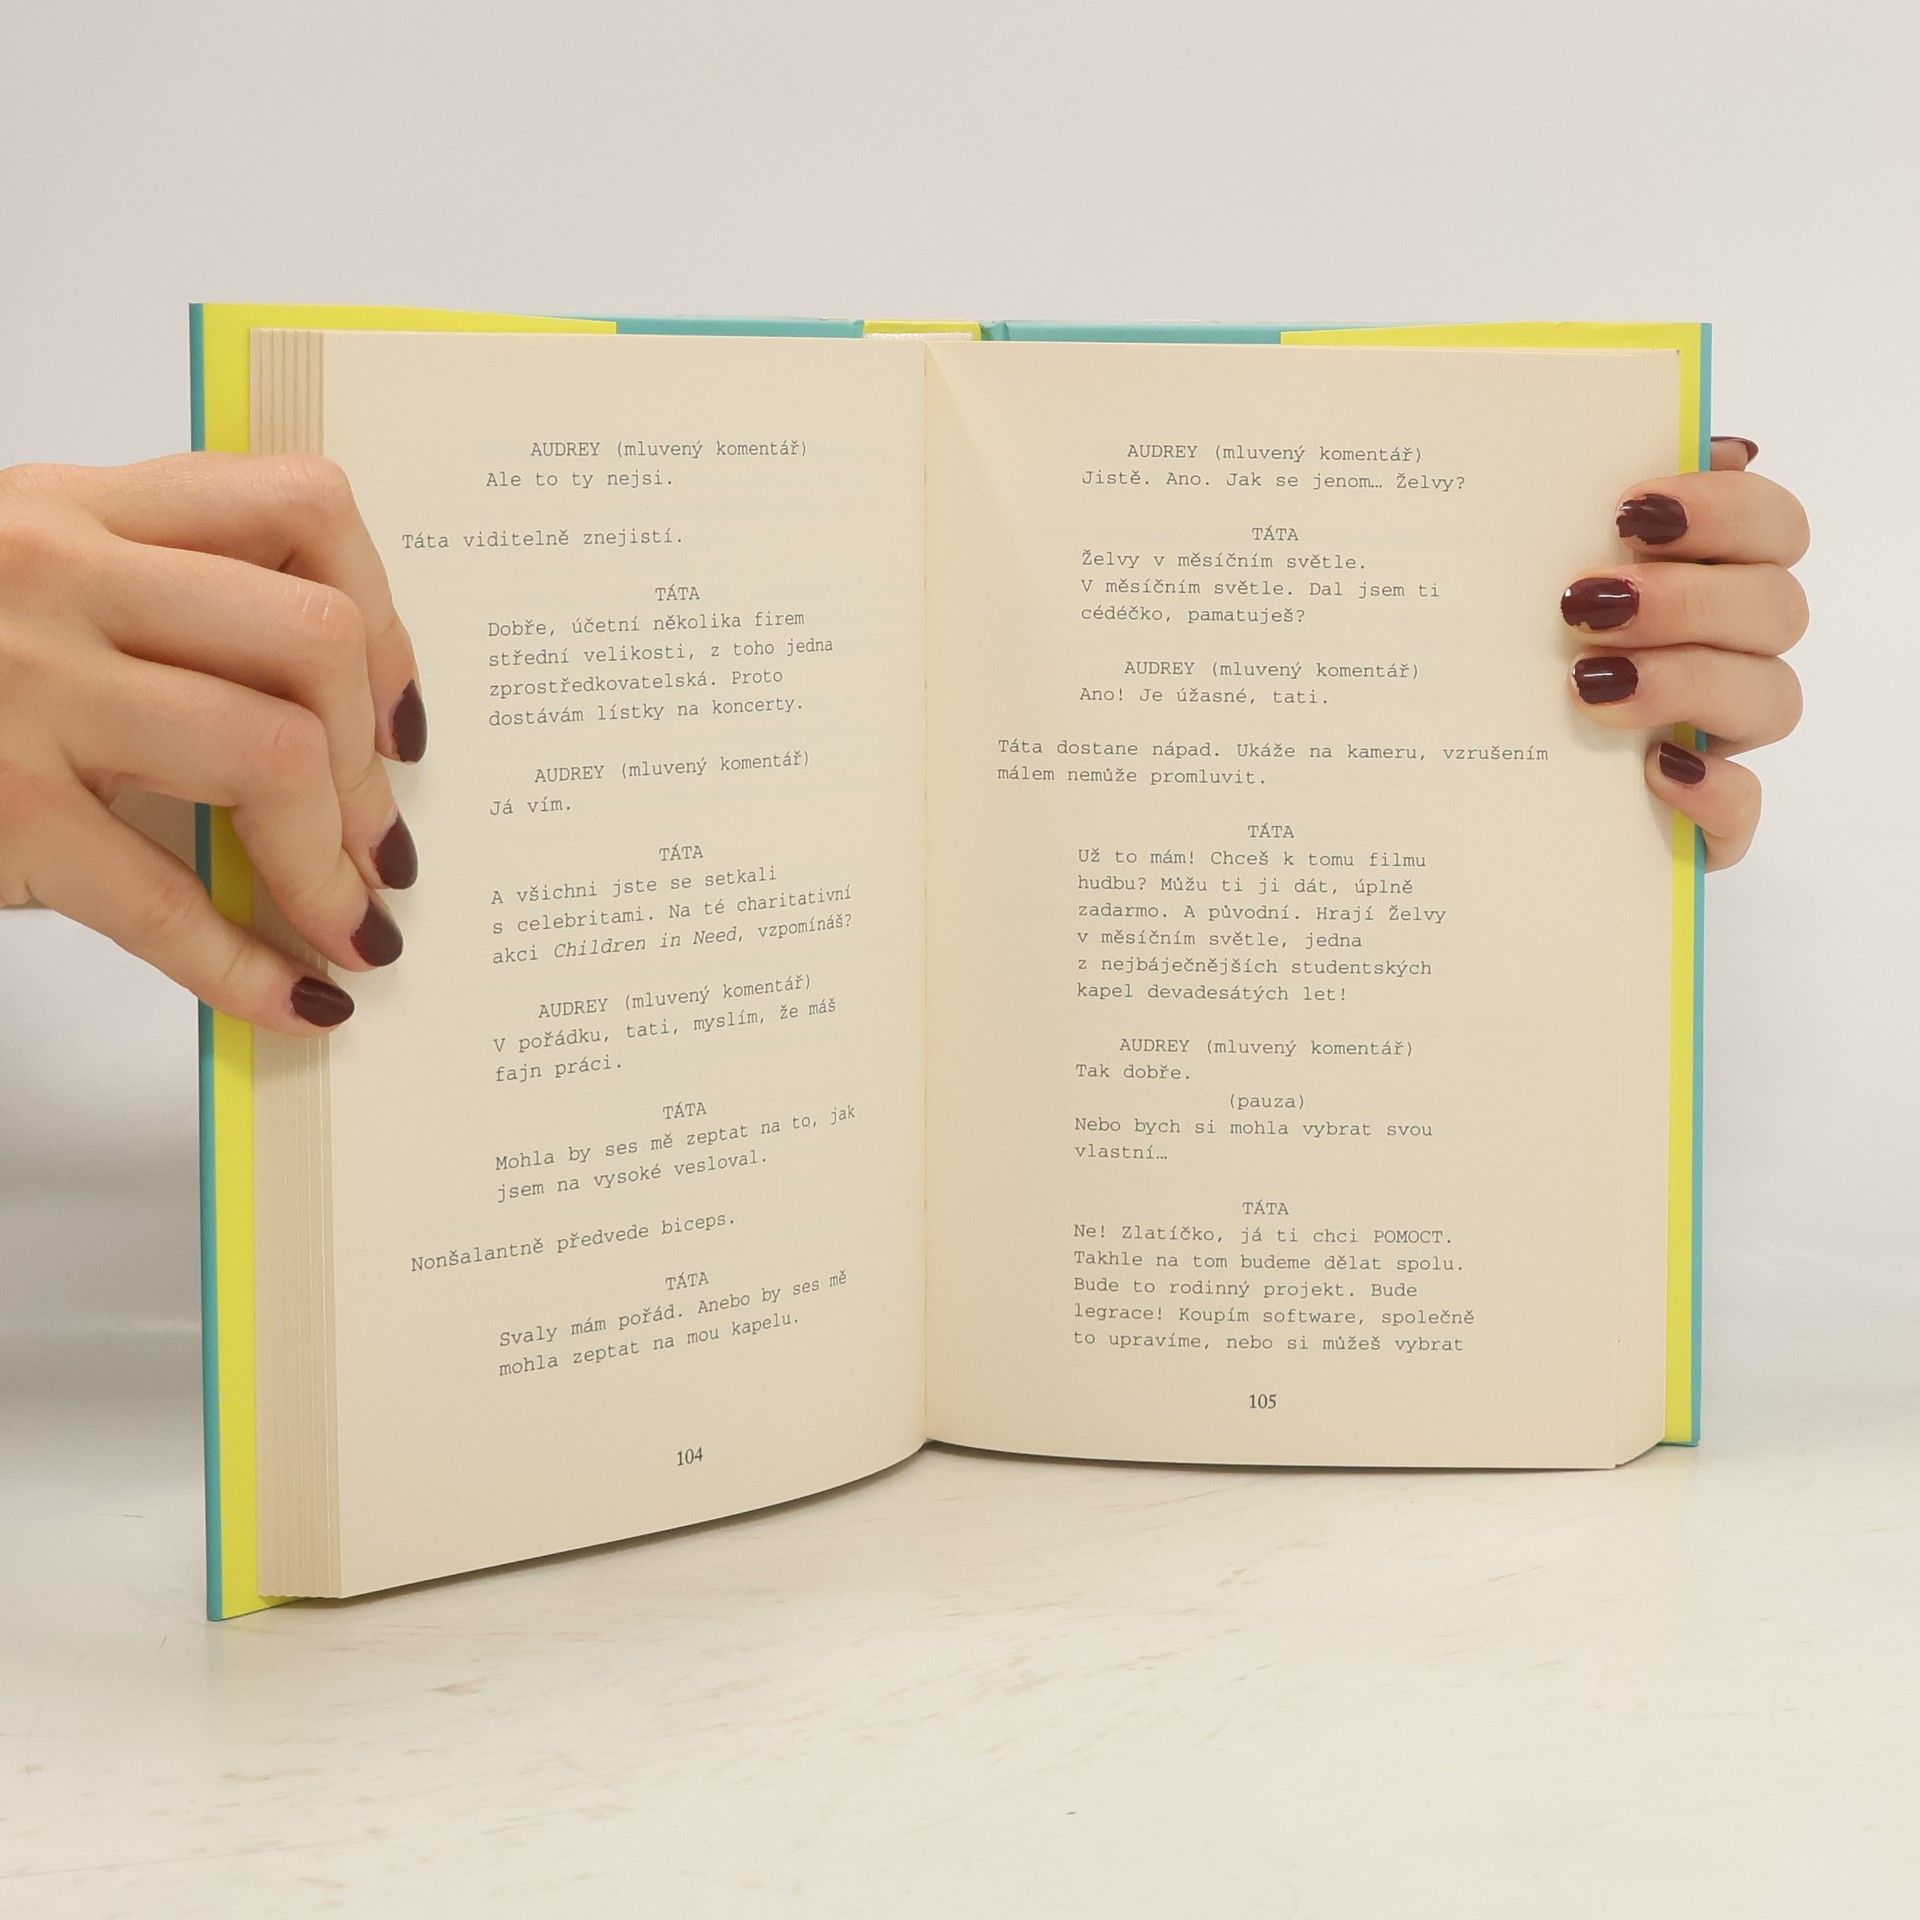 AUDREY (mluvený komentář)
Ale to ty nejsi.
Táta viditelně znejistí.
TÁTA
Dobře, účetní několika firem
střední velikosti, z toho jedna
zprostředkovatelská. Proto
dostávám lístky na koncerty.
AUDREY (mluvený komentář)
Já vím.
TÁTA
A všichni jste se setkali
s celebritami. Na té charitativní
akci Children in Need, vzpomínáš?
AUDREY (mluvený komentář)
V pořádku, tati, myslím, že máš
fajn práci.
TÁTA
Mohla by ses mě zeptat na to, jak
jsem na vysoké vesloval.
Nonšalantně předvede biceps.
TÁTA
Svaly mám pořád. Anebo by ses mě
mohla zeptat na mou kapelu.
104
AUDREY (mluvený komentář)
Jistě. Ano. Jak se jenom… Želvy?
TÁTA
Želvy v měsíčním světle.
V měsíčním světle. Dal jsem ti
cédéčko, pamatuješ?
AUDREY (mluvený komentář)
Ano! Je úžasné, tati.
Táta dostane nápad. Ukáže na kameru, vzrušením
málem nemůže promluvit.
TÁTA
Už to mám! Chceš k tomu filmu
hudbu? Můžu ti ji dát, úplně
zadarmo. A původní. Hrají Želvy
v měsíčním světle, jedna
z nejbáječnějších studentských
kapel devadesátých let!
AUDREY (mluvený komentář)
Tak dobře.
(pauza)
Nebo bych si mohla vybrat svou
vlastní…
TÁTA
Ne! Zlatíčko, já ti chci POMOCT.
Takhle na tom budeme dělat spolu.
Bude to rodinný projekt. Bude
legrace! Koupím software, společně
to upravíme, nebo si můžeš vybrat
105